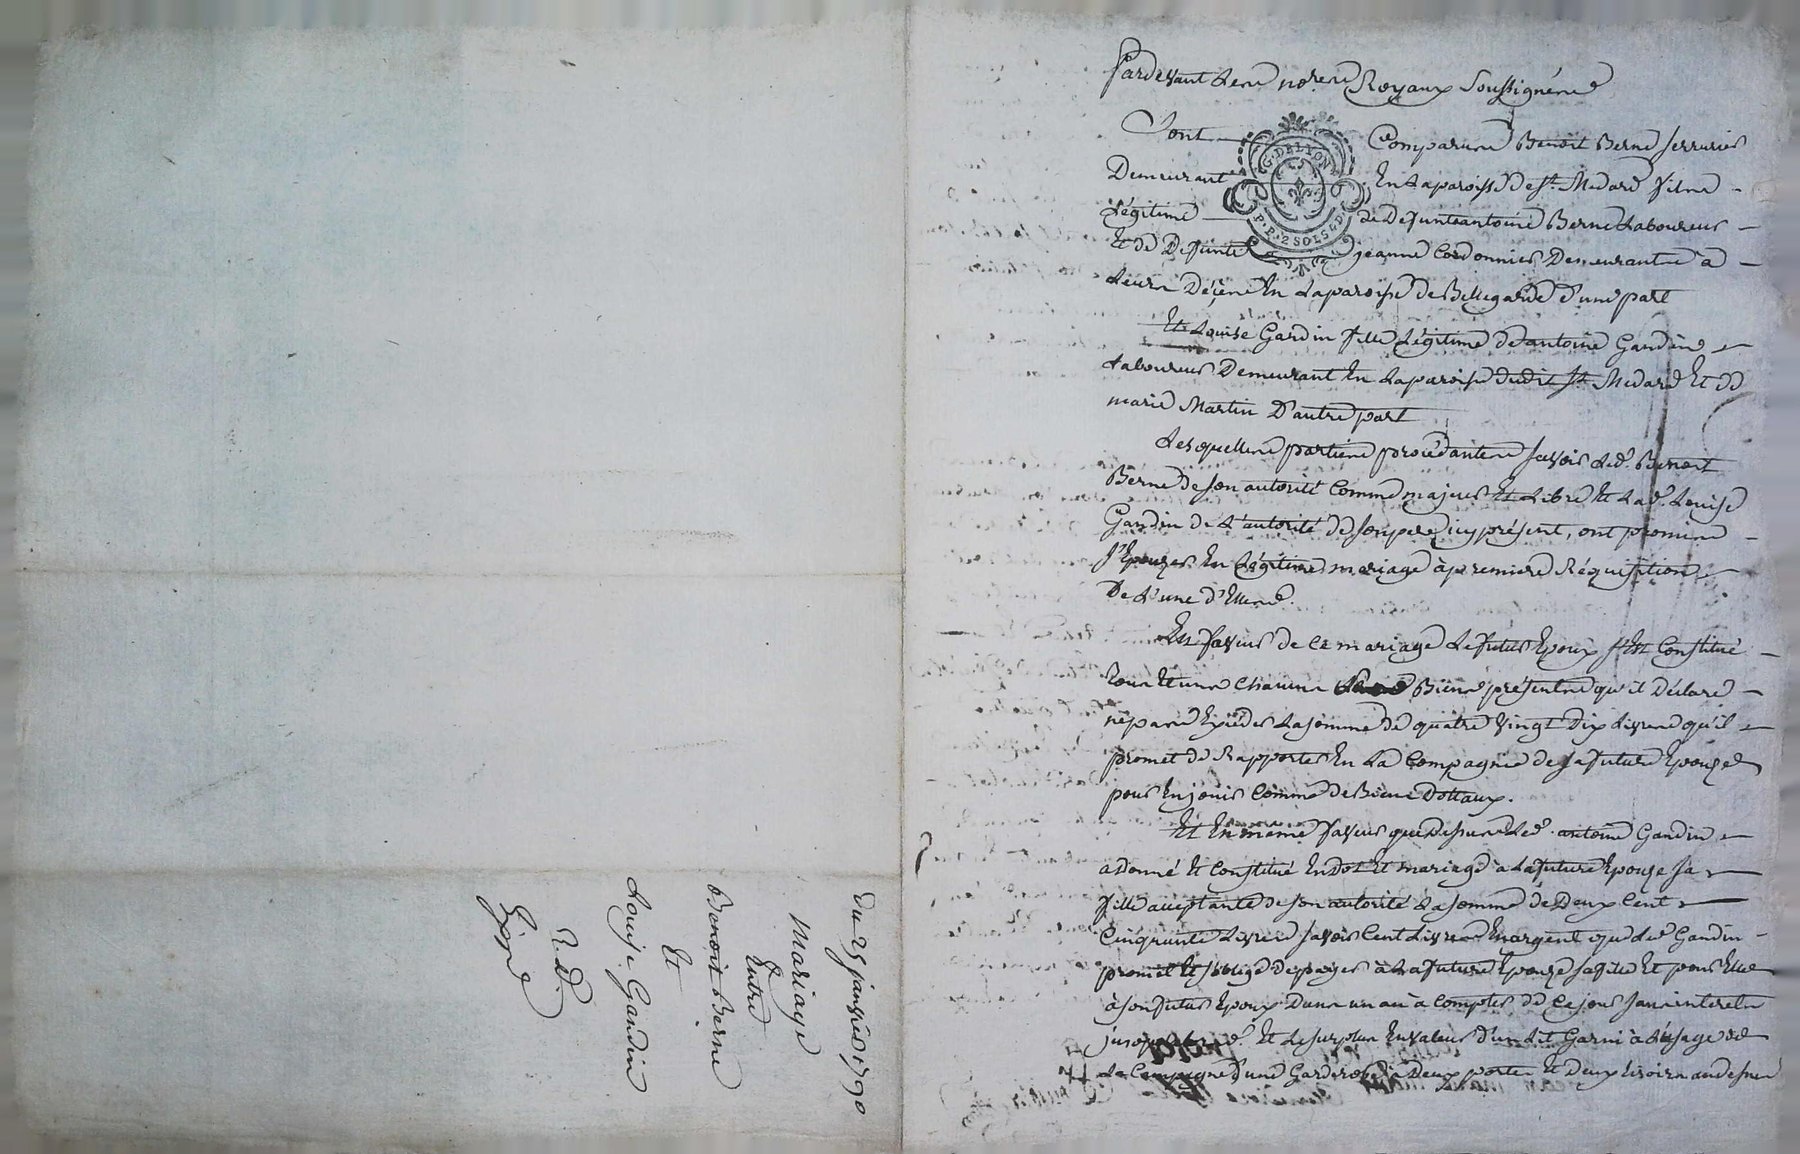 Pardevant les nores Royaux soussignés
Sont Comparus Benoit Berne serrurier
Demeurant En la paroisse de st. Medard fils
Légitime de Defunts antoine Berne Laboureur
Et de Defunte jeanne Cordonnier Demeurants à
Leurs Décès En la paroisse de Bellegarde d'une part
Et Louise Gardin fille Légitime de antoine Gandin
Laboureur Demeurant En la paroisse dudit st. Medard Et de
marie Martin D'autre part
Lesquelles parties procédantes savoir led. Benoit
Berne de son autorité comme majeur Et Libre Et lad. Louise
Gandin de L'autorité de son pere icy présent, ont promis
s'Epouzer En Légitime mariage à premiere Réquisition
De L'une d'Elles
En faveur de ce mariage le futur Epoux s'Est Constitué
tous Et uns Chacuns Biens présents qu'il Déclare
ne pas Exceder la somme de quatre vingt Dix Livres qu'il
promet de Rapporter En la Compagnie de sa future Epouze
pour En jouir Comme de Biens Dottaux.
Et En même faveur que Dessus led. antoine Gandin
a Donné Et Constitué En dot Et mariage à la future Epouze sa
fille acceptante de son autorité la somme de Deux Cent
Cinquante Livres savoir Cent Livres En argent que led. Gandin
promet Et s'oblige de payer à la future Epouze sa fille Et pour Elle
à son futur Epoux Dans un an à Compter de Ce jour sans interets
jusqu'alors Et le surplus En valeur d'un Lit Garni à L'usage de
la Campagne d'une Garderobe à Deux portes Et Deux tiroirs audessus
G. DE LYON
P.P. 2 SOLS 4 D.
Du 25 janvier 1790
Mariage
Entre
Benoit Berne
Et
Louise Gandin